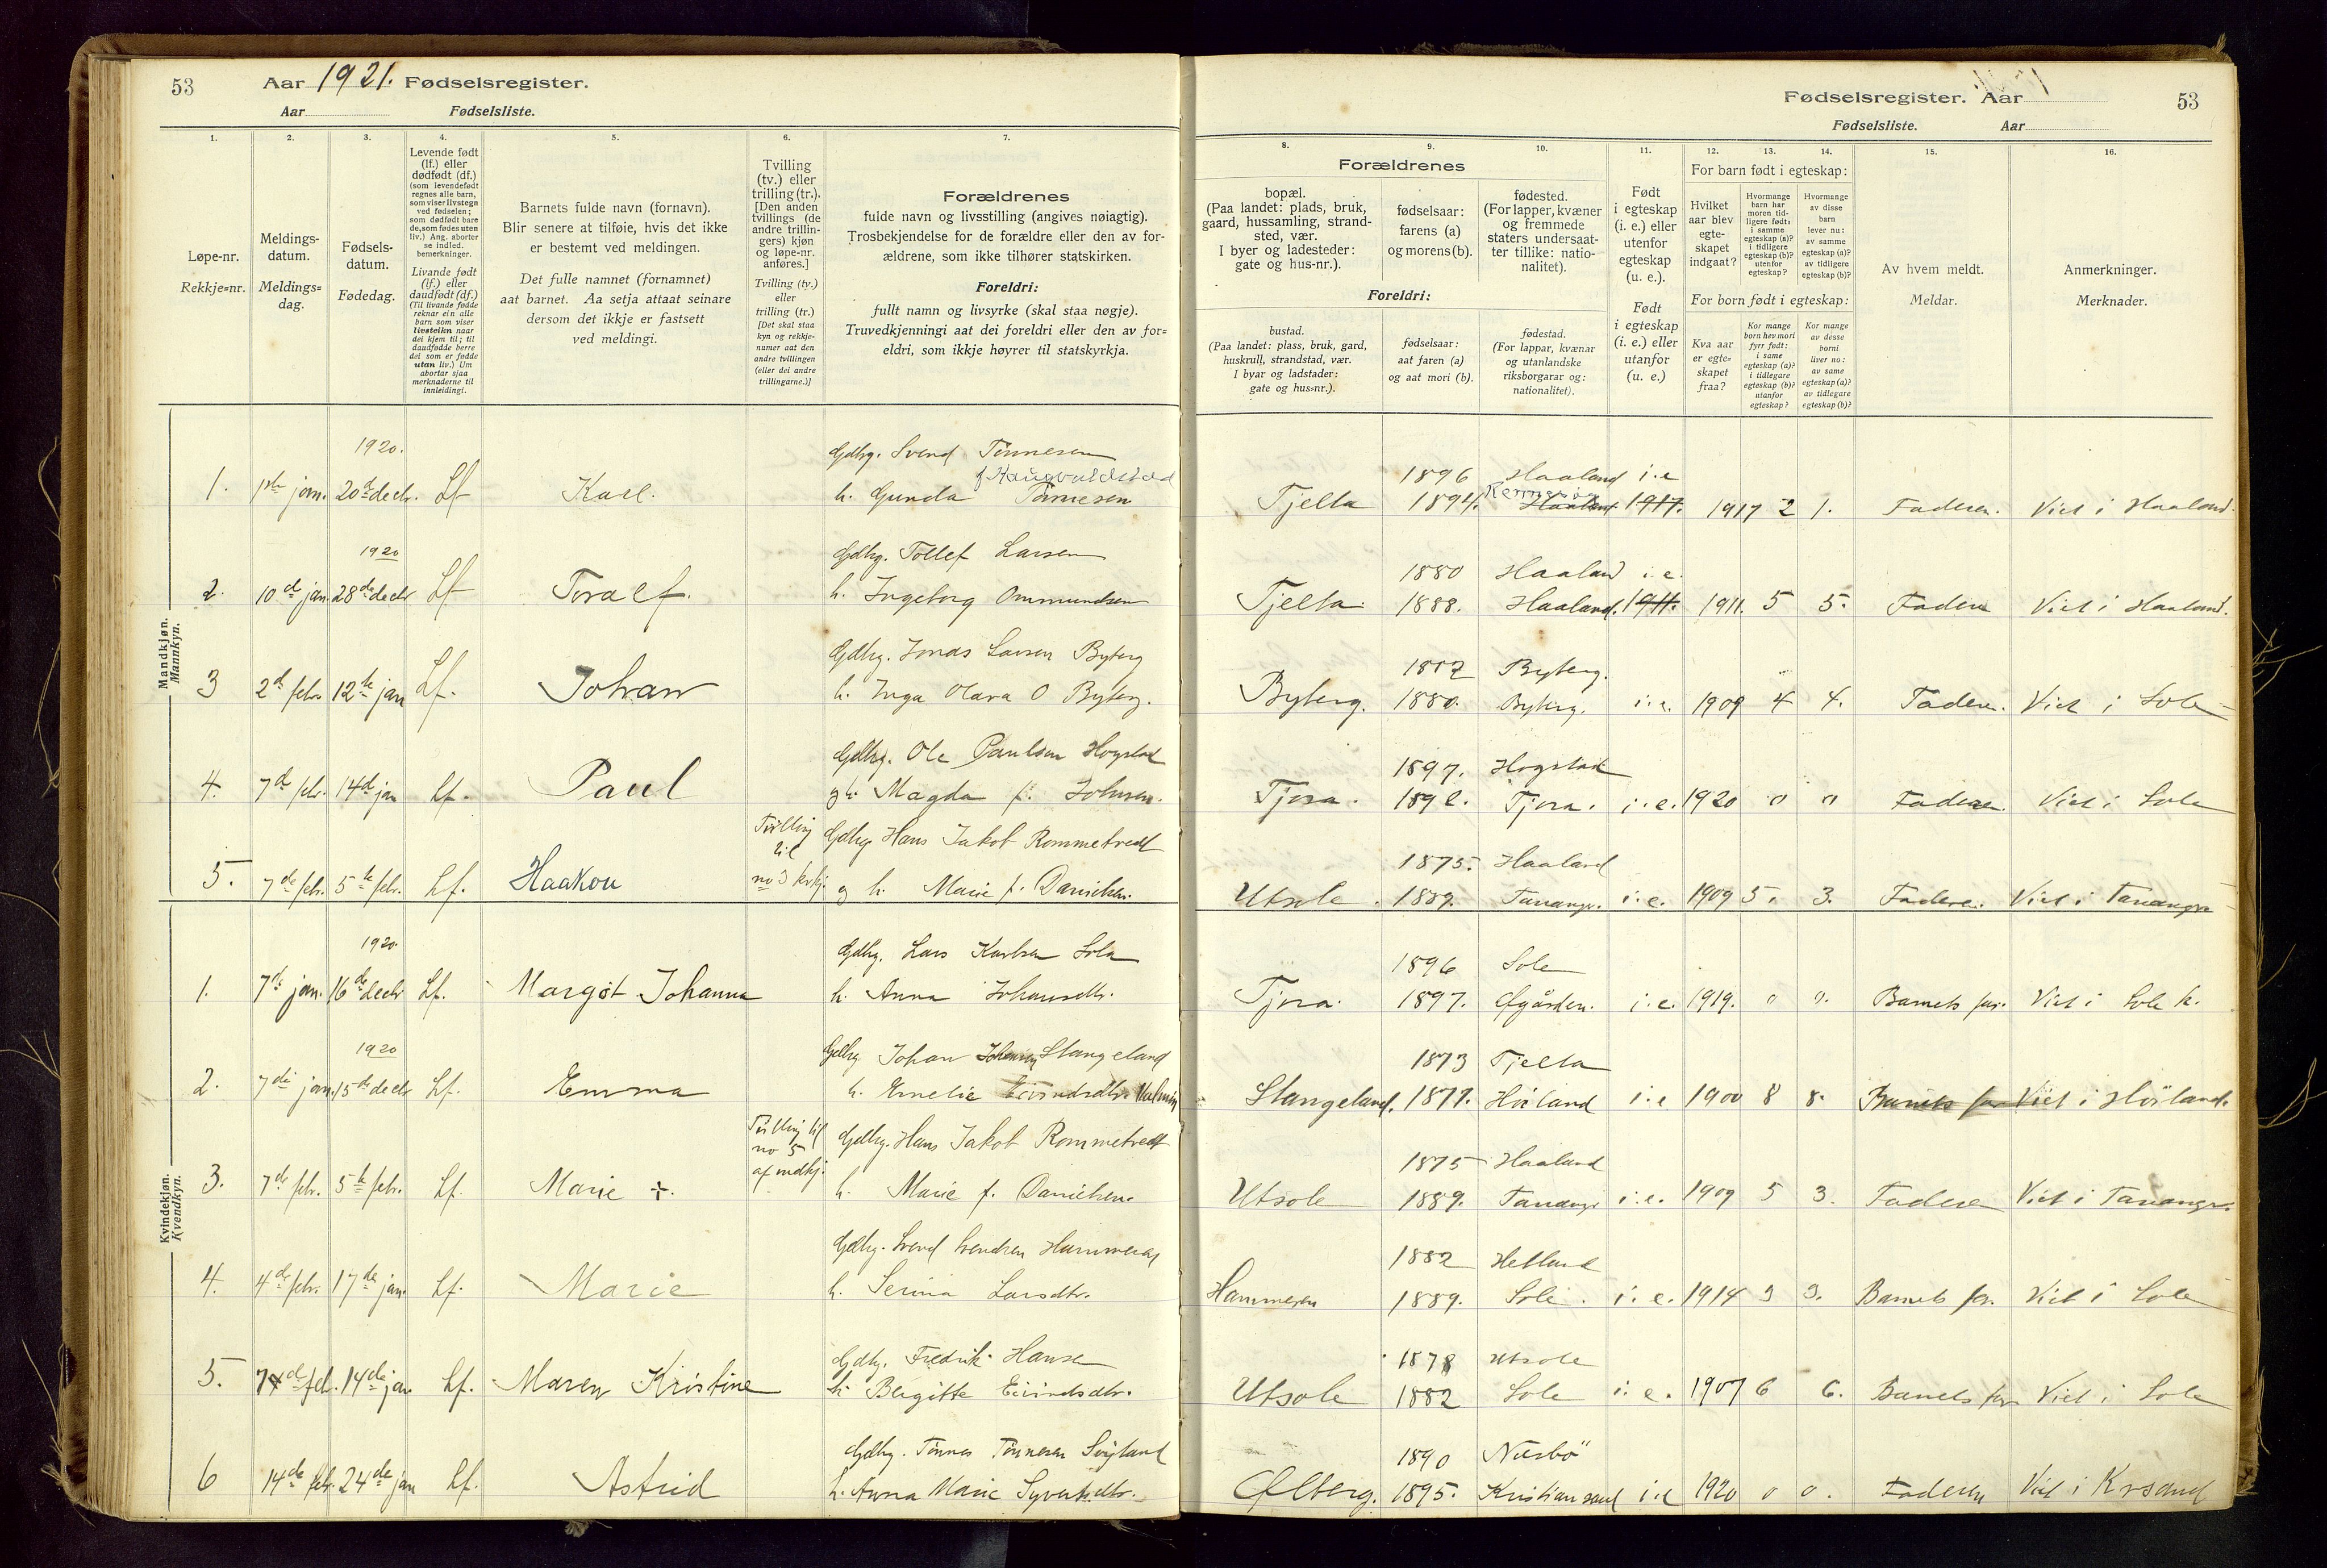 53
Aar 1921. Fødselsregister.
Aar Fødselsliste.
1.
2.
3.
4.
5.
6.
7.
Løpe-nr.
Rekkje=nr.
Meldings-
datum.
Meldings=
dag.
Fødsels-
datum.
Fødedag.
Levende født
(lf.) eller
dødfødt (df.)
(som levendefødt
regnes alle barn,
som viser livstegn
ved fødselen;
som dødfødt bare
de, som fødes uten
liv.) Ang. aborter
se indled.
bemerkninger.
Livande født
(lf.) eller
daudfødt (df.)
(Til livande fødde
reknar ein alle
barn som viser
livsteikn naar
dei kjem til; til
daudfødde berre
dei som er fødde
utan liv.) Um
abortar sjaa
merknaderne til
innleidingi.
Barnets fulde navn (fornavn).
Blir senere at tilføie, hvis det ikke
er bestemt ved meldingen.
Det fulle namnet (fornamnet)
aat barnet. Aa setja attaat seinare
dersom det ikkje er fastsett
ved meldingi.
Tvilling
(tv.) eller
trilling (tr.).
[Den anden
tvillings (de
andre trillin-
gers) kjøn
og løpe-nr.
anføres.]
Tvilling (tv.)
eller
trilling (tr.)
[Det skal staa
kyn og rekkje-
numer aat den
andre tvillingen
(eller dei andre
trillingarne.)]
Forældrenes
fulde navn og livsstilling (angives nøiagtig).
Trosbekjendelse for de forældre eller den av for-
ældrene, som ikke tilhører statskirken.
Foreldri:
fullt namn og livsyrke (skal staa nøgje).
Truvedkjenningi aat dei foreldri eller den av for=
eldri, som ikkje høyrer til statskyrkja.
Mandkjøn.
Mannkyn.
1920.
Gdbrg. Svend Tønnesen
f. Haugvaldstad
1. 1ste jan. 20de decbr. Lf Karl. h. Gunda Tønnesen
1920
Gdbrg. Tollef Larsen
2. 10de jan. 28de decbr Lf Toralf. h. Ingeborg Ommundsen
Gdbrg. Jonas Larsen Byberg
3 2de febr 12te jan Lf. Johan h. Inga Olava O Byberg.
Gdbrg. Ole Paulsen Hogstad
4. 7de febr. 14de jan Lf. Paul og h. Magda f. Johnsen.
Tvilling
til
no 3 kvkj.
Gdbrg Hans Jakob Rommetvedt
5. 7de febr. 5te febr. Lf. Haakon og h. Marie f. Danielsen.
Kvindekjøn.
Kvendkyn.
1920.
Gdbrg. Lars Karlsen Sola
1. 7de jan. 16de decbr Lf. Margot Johanna h. Anna Johansdtr.
1920
Gdbrg Johan Johnsen Stangeland
2. 7de jan. 15de decbr Lf. Emma h. Emelie Eivindsdtr. Malmin
Tvilling til
no 5
af mdkj.
Gdbrg. Hans Jakob Rommetvedt
3. 7de febr. 5te febr. Lf. Marie +. h. Marie f. Danielsen.
Gdbrg. Svend Svendsen Hammeren
4. 4de febr. 17de jan. Lf. Marie h. Serina Larsdtr.
Gdbrg. Fredrik Hansen
5. 7de feb. 14de jan Lf. Maren Kristine h. Bergitte Eivindsdtr.
Gdbrg. Tønnes Tønnesen
6 14de febr. 24de jan Lf. Astrid h. Anna Marie Syvertsdtr.
Fødselsregister. Aar
53
Fødselsliste. Aar
8.
9.
10.
11.
12.
13.
14.
15.
16.
Forældrenes
bopæl.
(Paa landet: plads, bruk,
gaard, hussamling, strand-
sted, vær.
I byer og ladesteder:
gate og hus-nr.).
fødselsaar:
farens (a)
og morens (b).
fødested.
(For lapper, kvæner
og fremmede
staters undersaat-
ter tillike: natio-
nalitet).
Foreldri:
bustad.
(Paa landet: plass, bruk, gard,
huskrull, strandstad, vær.
I byar og ladstader:
gate og hus=nr.).
fødselsaar:
aat faren (a)
og aat mori (b).
fødestad.
(For lappar, kvænar
og utanlandske
riksborgarar og:
nationalitet).
Født
i egteskap
(i. e.) eller
utenfor
egteskap
(u. e.).
Født
i egteskap
(i. e.) eller
utanfor
(u. e.)
For barn født i egteskap:
Hvilket
aar blev
egte-
skapet
indgaat?
Hvormange
barn har
moren tid-
ligere født:
i samme
egteskap (a)?
i tidligere
egteskap (b)?
utenfor
egteskap?
Hvormange
av disse
barn
lever nu:
av samme
egteskap (a)?
av tidligere
egteskap (b)?
For born født i egteskap:
Kva aar
er egte=
skapet
fraa?
Kor mange
born hev mori
fyrr født:
i same
egteskap (a)?
i tidlegare
egteskap (b)?
utanfor
egteskap?
Kor mange
av desse
borni
liver no:
av same
egteskap (a)?
av tidlegare
egteskap (b)?
Av hvem meldt.
Meldar.
Anmerkninger.
Merknader.
1896 Haaland i. e
Rennesø
Tjelta 1894. Haaland 1917. 1917 2 1. Faderen. Viet i Haaland.
1880 Haaland i. e.
Tjelta 1888. Haaland. 1911. 1911. 5 5. Faderen Viet i Haaland.
1882 Byberg.
Byberg. 1880. Byberg. i. e. 1909 4 4. Faderen. Viet i Sole
1897. Hogstad
Tjora. Tjora. i. e. 1920 0 0 Faderen. Viet i Sole
1875. Haaland
Utsole. 1889. Tananger. i. e. 1909 5. 3. Faderen. Viet i Tananger
1896 Sole
Tjora. 1897. Øgården. i. e. 1919. 0 0. Barnets far. Viet i Sole k.
1873 Tjelta
Stangeland. 1877. Høiland i. e 1900 8 8. Barnets far Viet i Høiland.
1875 Haaland
Utsole 1889. Tananger i. e. 1909 5 3. Faderen Viet i Tananger.
1882 Helland
Hammeren 1889. Sole. i. e. 1914 3 3. Barnets far. Viet i Sole
1878 Utsole
Utsole 1882 Sole i. e. 1907 6 6. Barnets far Viet i Sole
1890 Næsbö
Ølberg. 1895. Kristiansand i. e 1920 0 0. Faderen Viet i Krsand